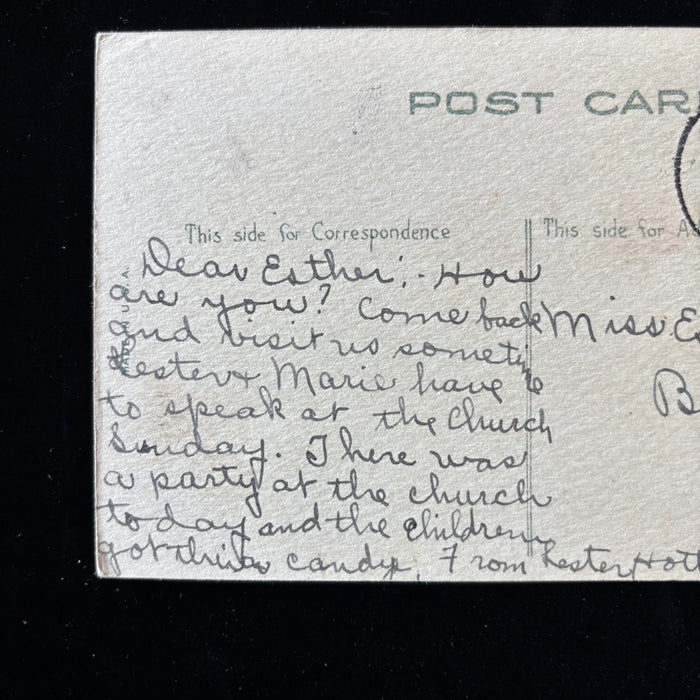 POST CAR
This side for Correspondence
This side for A
Dear Esther:- How
are you? Come back
and visit us sometime
Lester & Marie have
to speak at the church
Sunday. There was
a party at the church
today and the children
got their candy. From Lester Hott
Miss Es
B